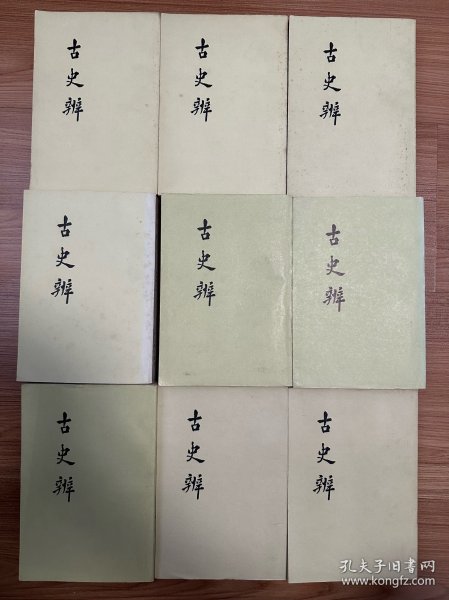 古史辨
古史辨
古史辨
古史辨
古史辨
古史辨
古史辨
古史辨
古史辨
孔夫子旧书网
www.kongfz.com